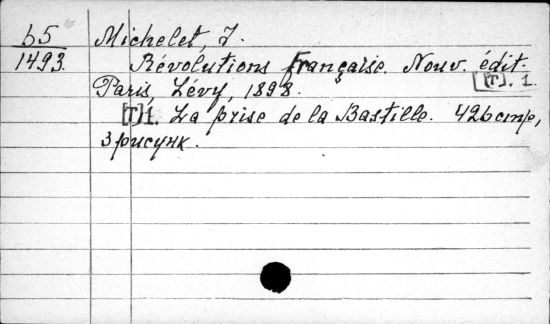 b5 Michelet, J.
1493. Révolutions française. Nouv. édit.
Paris, Lévy, 1898. [T]. 1.
[T] 1. La prise de la Bastille. 426 стр,
3 рисунк.